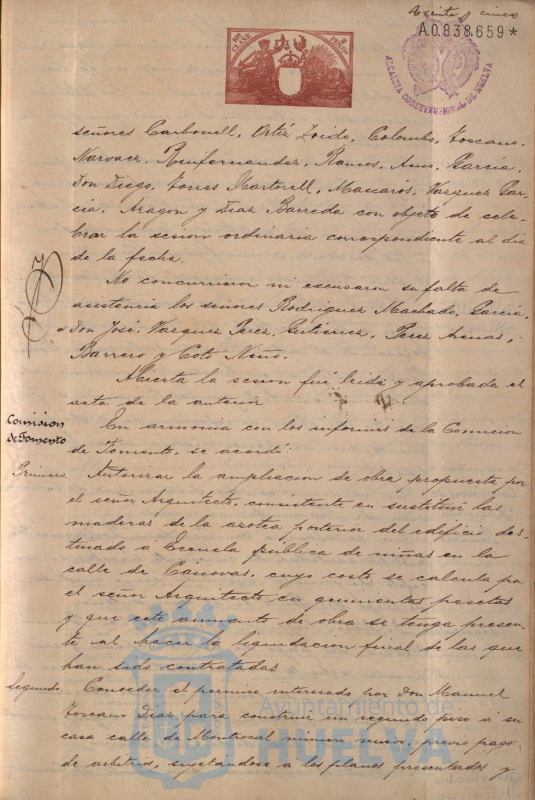 Treinta y cinco
A.0.838.659*
10ª CLASE
2 PESETAS
ALCALDIA CONSTITUCIONAL DE HUELVA
señores Carbonell, Ortíz, Zoido, Colombo, Toscano,
Narvaez, Rui-fernandez, Ramos, Amo, Garcia,
Don Diego, Torres Martorell, Mascaros, Vazquez Gar-
cia, Aragon y Diaz Barreda con objeto de cele-
brar la sesion ordinaria correspondiente al dia
de la fecha.
No concurrieron ni escusaron su falta de
asistencia los señores Rodriguez Machado, Garcia,
Don José, Vazquez Perez, Gutierrez, Perez Arenas,
Barrero y Coto Nino.
Abierta la sesion fué leida y aprobada el
acta de la anterior
Comision
de Fomento
En armonia con los informes de la Comision
de Fomento, se acordó:
Primero. Autorizar la ampliacion de obra propuesta por
el señor Arquitecto, consistente en sustituir las
maderas de la azotea posterior del edificio des-
tinado á Escuela pública de niñas en la
calle de Cánovas, cuyo costo se calcula por
el señor Arquitecto en quinientas pesetas
y que este aumento de obra se tenga presen-
te al hacer la liquidacion final de las que
han sido contratadas
Segundo. Conceder el permiso interesado por Don Manuel
Toscano Diaz para construir un segundo piso á su
casa calle de Montrocal número nueve, previo pago
de arbitrios, sujetandose á los planos presentados y
Ayuntamiento de
HUELVA